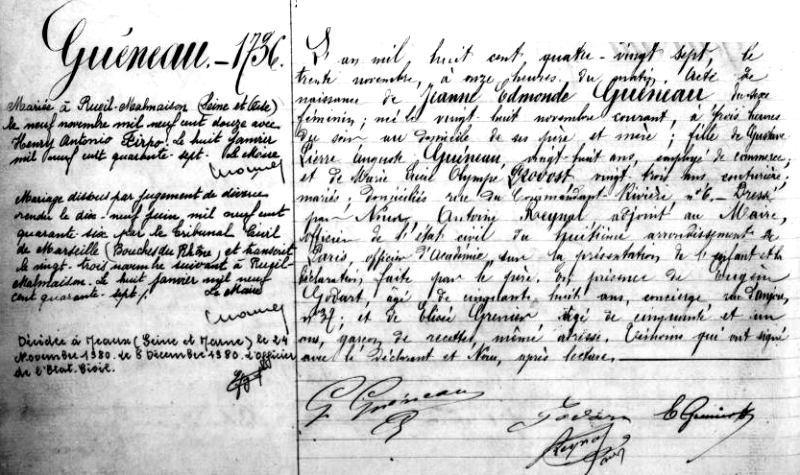 Guéneau. - 1736.
Mariée à Rueil-Malmaison (Seine et Oise)
le neuf novembre mil neuf cent douze avec
Henry Antonio Firpo. Le huit janvier
mil neuf cent quarante-sept. Le
Mariage dissous par jugement de divorce
rendu le dix-neuf juin, mil neuf cent
quarante six par le Tribunal Civil
de Marseille (Bouches du Rhône) et transcrit
le vingt-trois novembre suivant à Rueil-
Malmaison. Le huit janvier mil neuf
cent quarante-sept /. Le Maire
Décédée à Meaux (Seine et Marne) le 24
Novembre 1980. Le 8 Décembre 1980. L'officier
de l'Etat-Civil.
L'an mil huit cent quatre-vingt sept, le
trente novembre, à onze heures du matin. Acte de
naissance de Jeanne Edmonde Guéneau du sexe
féminin ; née le vingt-huit novembre courant, à trois heures
du soir au domicile de ses père et mère ; fille de Gustave
Pierre Auguste Guéneau, vingt-huit ans, employé de commerce,
et de Marie Olympe Provost vingt trois ans couturière ;
mariés ; domiciliés rue du Commandant-Rivière n° 6. - Dressé
par Nous Antoine Reynal adjoint au Maire,
officier de l'état civil du huitième arrondissement de
Paris, officier d'Académie, sur la présentation de l'enfant et la
déclaration faite par le père. En présence de Eugène
Godart, âgé de cinquante huit ans, concierge, rue d'Anjou,
n° 37 ; et de Elisée Grenier âgé de cinquante et un
ans, garçon de recettes, même adresse. Témoins qui ont signé
avec le déclarant et Nous, après lecture.
G. Guéneau
Godart
E Grenier
Reynal